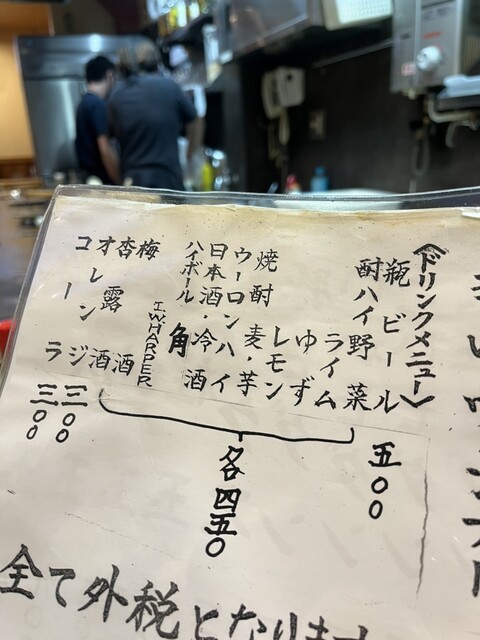 〈ドリンクメニュー〉
瓶ビール 五〇〇
酎ハイ野菜
ライム
ゆず
レモン
焼酎 麦・芋
ウーロンハイ
日本酒・冷酒
ハイボール 角
I.W.HARPER
梅酒
杏露酒
各四五〇
オレンジ 三〇〇
コーラ 三〇〇
全て外税となります